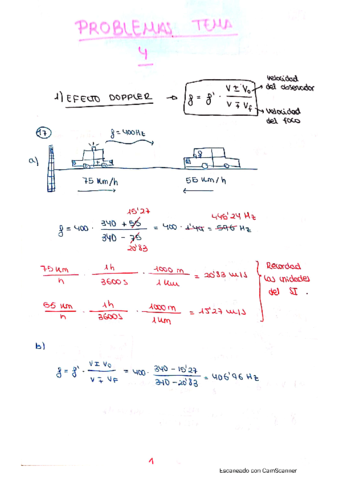 PROBLEMAS TEMA
4
1) EFECTO DOPPLER → f = f' · (V ± V₀)/(V ∓ V_F)
velocidad del observador
velocidad del foco
f = 400 Hz
a)
75 Km/h
55 Km/h
f = 400 · (340 + 55 15'27)/(340 - 75 20'83) = 400 · 1'40 = Hz 445'24 Hz
75 km/h · 1h/3600s · 1000 m/1 km = 20'83 m/s
55 km/h · 1h/3600s · 1000 m/1 km = 15'27 m/s
Recordad las unidades del SI.
b)
f = f' · (V ± V₀)/(V ∓ V_F) = 400 · (340 - 15'27)/(340 - 20'83) = 406'96 Hz
1
Escaneado con CamScanner